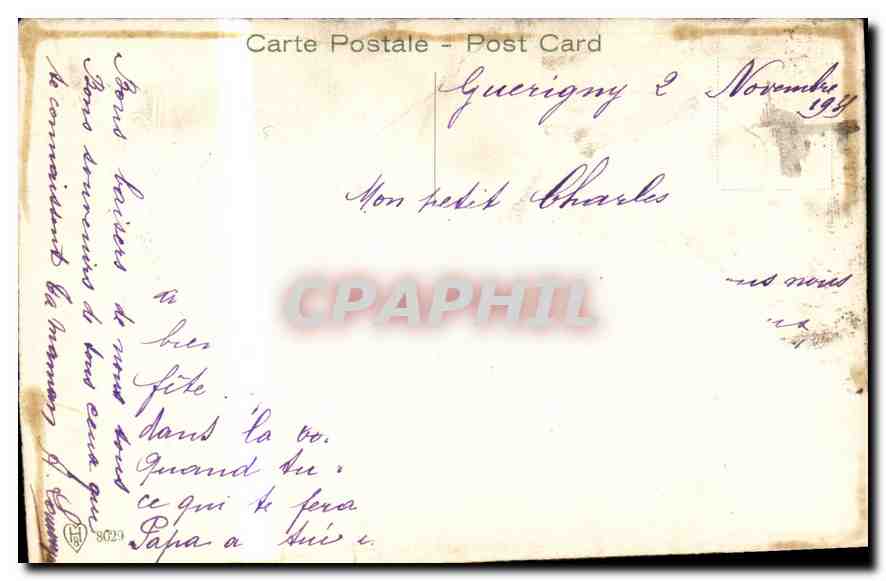 Carte Postale - Post Card
Guerigny 2 Novembre
Mon petit Charles
nous
bien
fête
dans la
Quand tu
ce qui te fera
Papa a
Bons baisers de nous tous
Bons souvenirs de tous ceux qui
te connaissent Ta maman
8029
CPAPHIL